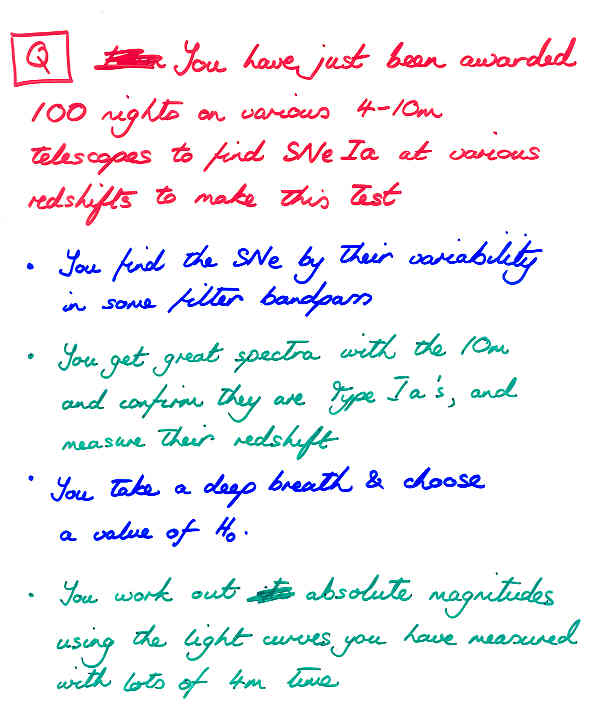 Q You have just been awarded
100 nights on various 4-10m
telescopes to find SNe Ia at various
redshifts to make this test
• You find the SNe by their variability
in some filter bandpass
• You get great spectra with the 10m
and confirm they are Type Ia's, and
measure their redshift
• You take a deep breath & choose
a value of H₀.
• You work out absolute magnitudes
using the light curves you have measured
with lots of 4m time